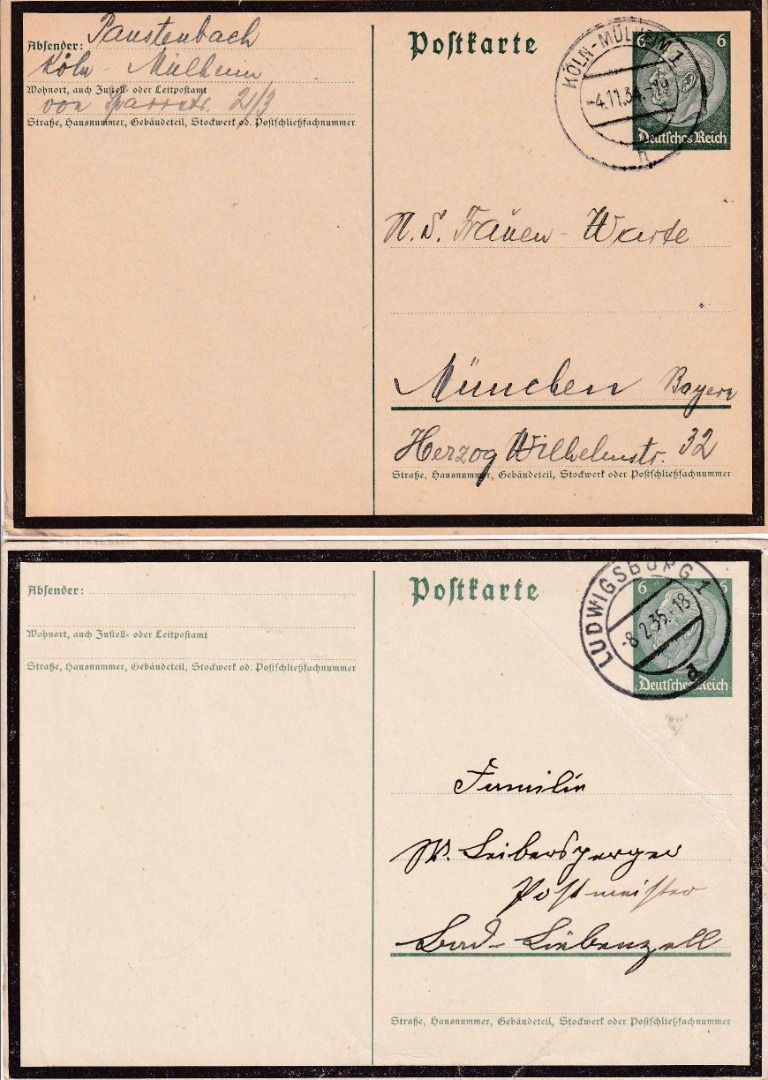 Absender: Paustenbach
Köln - Mülheim
Wohnort, auch Zustell- oder Leitpostamt
von Sparrstr. 21/3
Straße, Hausnummer, Gebäudeteil, Stockwerk od. Postschließfachnummer
Postkarte
KÖLN-MÜLHEIM 1
-4.11.34.-19
n
6 6
Deutsches Reich
N. S. Frauen - Warte
München Bayern
Herzog Wilhelmstr. 32
Straße, Hausnummer, Gebäudeteil, Stockwerk oder Postschließfachnummer
Absender:
Wohnort, auch Zustell- oder Leitpostamt
Straße, Hausnummer, Gebäudeteil, Stockwerk od. Postschließfachnummer
Postkarte
LUDWIGSBURG 1
-8.2.35.-18
a
6 6
Deutsches Reich
Familie
W. Leibersperger
Postmeister
Bad-Liebenzell
Straße, Hausnummer, Gebäudeteil, Stockwerk oder Postschließfachnummer